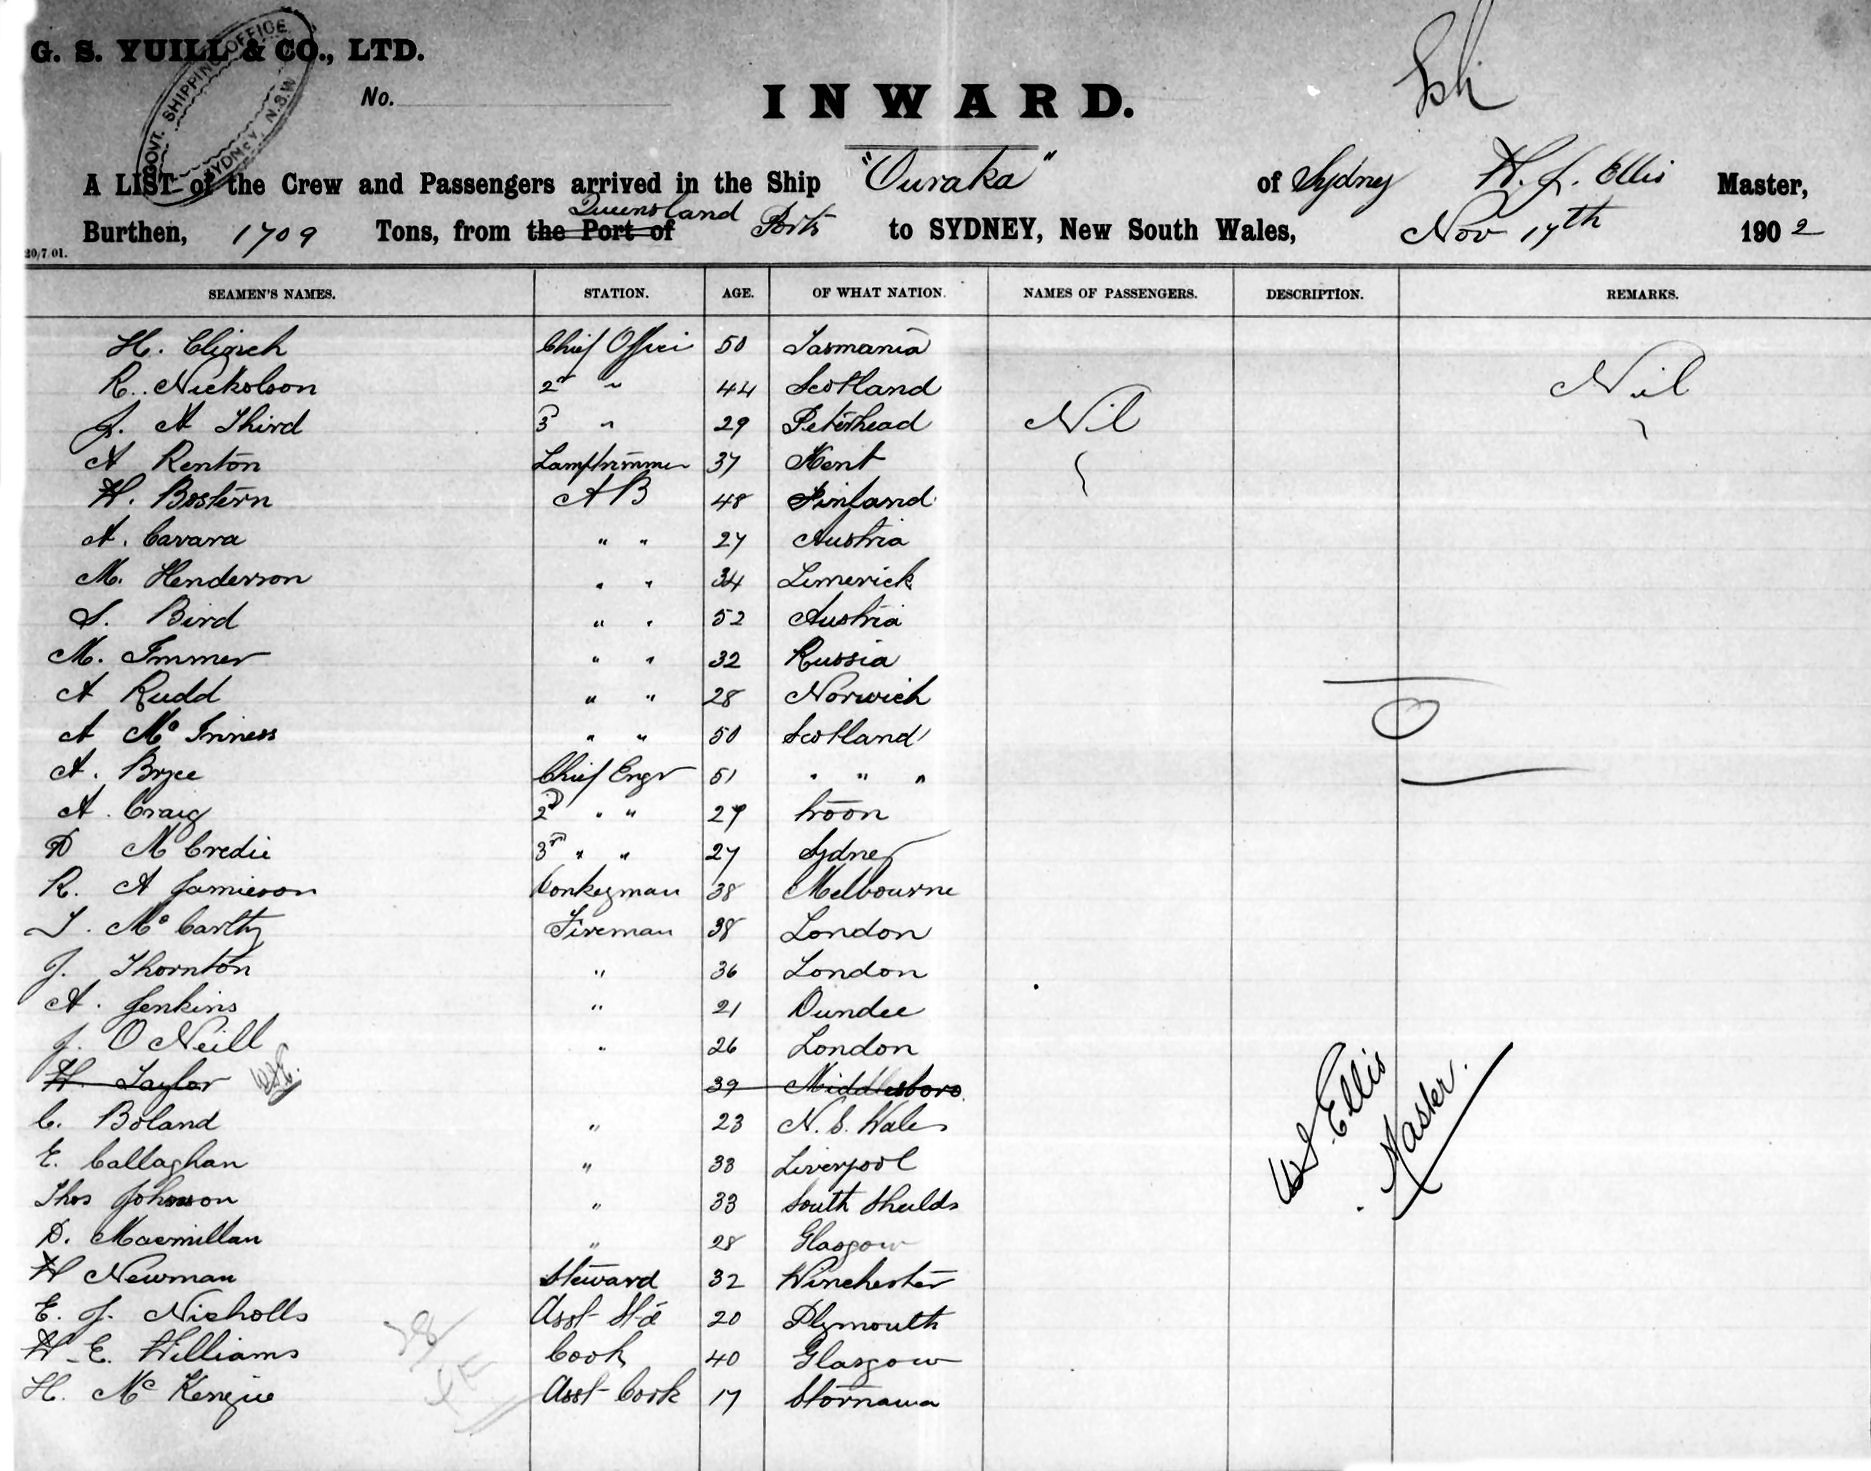 G. S. YUILL & CO., LTD.
GOVT. SHIPPING OFFICE SYDNEY, N.S.W.
No.
INWARD.
A LIST of the Crew and Passengers arrived in the Ship "Ouraka" of Sydney W. J. Ellis Master,
Queensland
Burthen, 1709 Tons, from the Port of Ports to SYDNEY, New South Wales, Nov 17th 1902
20/7/01.
SEAMEN'S NAMES. STATION. AGE. OF WHAT NATION. NAMES OF PASSENGERS. DESCRIPTION. REMARKS.
H. Chief Officer 50 Tasmania
R. Nickolson 2nd " 44 Scotland Nil
J. A Third 3 " 29 Peterhead Nil
A Renton Lamptrimmer 37 Kent
W. Bostern A B 48 Finland
A. Cavara " " 27 Austria
M. Henderson " " 34 Limerick
S. Bird " " 52 Austria
M. Immer " " 32 Russia
A Rudd " " 28 Norwich
A McInness " " 50 Scotland
A. Bryce Chief Engr 51 " " "
A. Craig 2d " " 29 Troon
D McCredie 3rd " " 27 Sydney
R. A Jamieson Donkeyman 38 Melbourne
T. McCarthy Fireman 38 London
J. Thornton " 36 London
A. Jenkins " 21 Dundee
J. O Neill " 26 London
W. Taylor 39 Middlesboro.
C. Boland " 23 N. S. Wales
E. Callaghan " 33 Liverpool
Thos Johnson " 33 South Sheilds
D. Macmillan " 28 Glasgow
W Newman Steward 32 Winchester
E. J. Nicholls Asst Std 20 Plymouth
W. E. Williams Cook 40 Glasgow
H. McKenzie Asst Cook 17 Stornawa
28
W J. Ellis
Master.